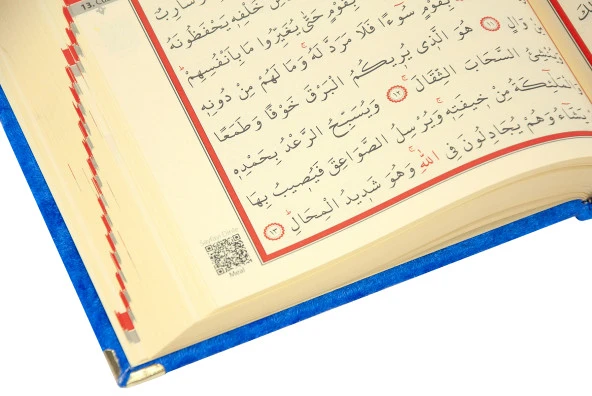 13.
خَلْفِهٖ يَحْفَظُونَهُ
بِقَوْمٍ حَتّٰى يُغَيِّرُوا مَا بِاَنْفُسِهِمْ
بِقَوْمٍ سُٓوءًا فَلَا مَرَدَّ لَهُۚ وَمَا لَهُمْ مِنْ دُونِهٖ
وَالٍ ﴿١١﴾ هُوَ الَّذٖي يُرٖيكُمُ الْبَرْقَ خَوْفًا وَطَمَعًا
وَيُنْشِئُ السَّحَابَ الثِّقَالَۚ ﴿١٢﴾ وَيُسَبِّحُ الرَّعْدُ بِحَمْدِهٖ
وَالْمَلٰٓئِكَةُ مِنْ خٖيفَتِهٖۚ وَيُرْسِلُ الصَّوَاعِقَ فَيُصٖيبُ بِهَا
يَشَٓاءُ وَهُمْ يُجَادِلُونَ فِي اللّٰهِۚ وَهُوَ شَدٖيدُ الْمِحَالِۜ ﴿١٣﴾
Meal